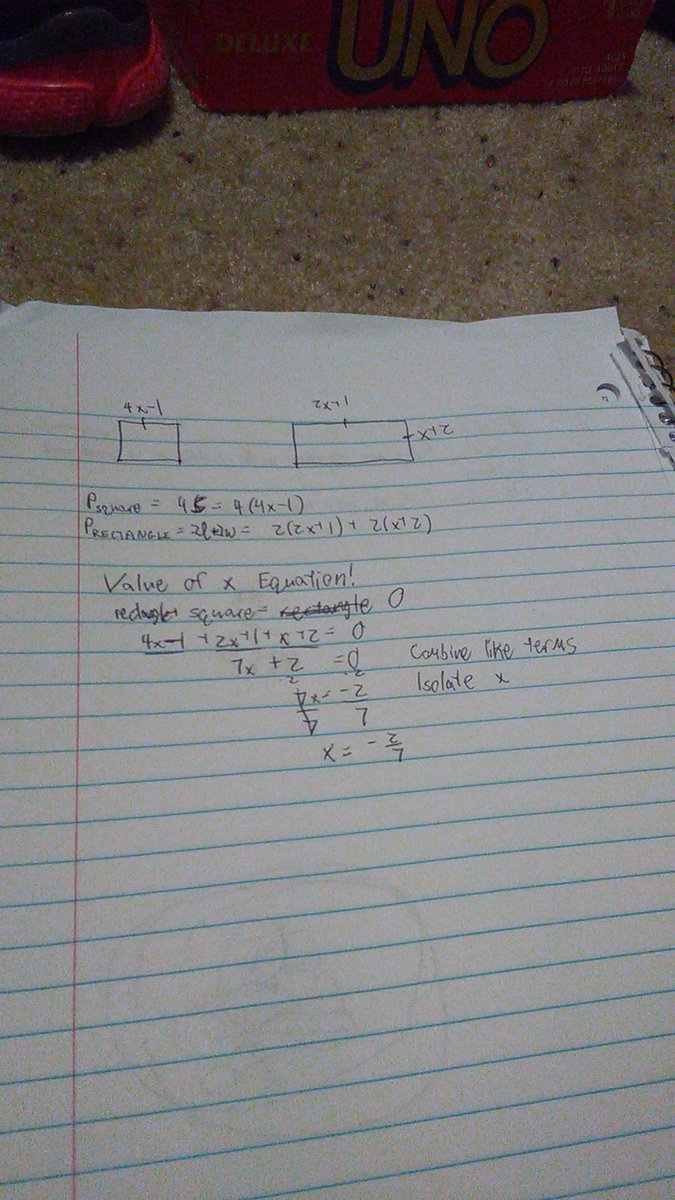 DELUXE
UNO
4x-1
2x+1
x+2
Psquare = 4s = 4(4x-1)
PRECTANGLE = 2l+2w = 2(2x+1) + 2(x+2)
Value of x Equation!
rectangle+ square = rectangle 0
4x-1 + 2x+1 + x+2 = 0
7x + 2 = 0 Combine like terms
-2 -2
7x = -2 Isolate x
7 7
x = - 2/7